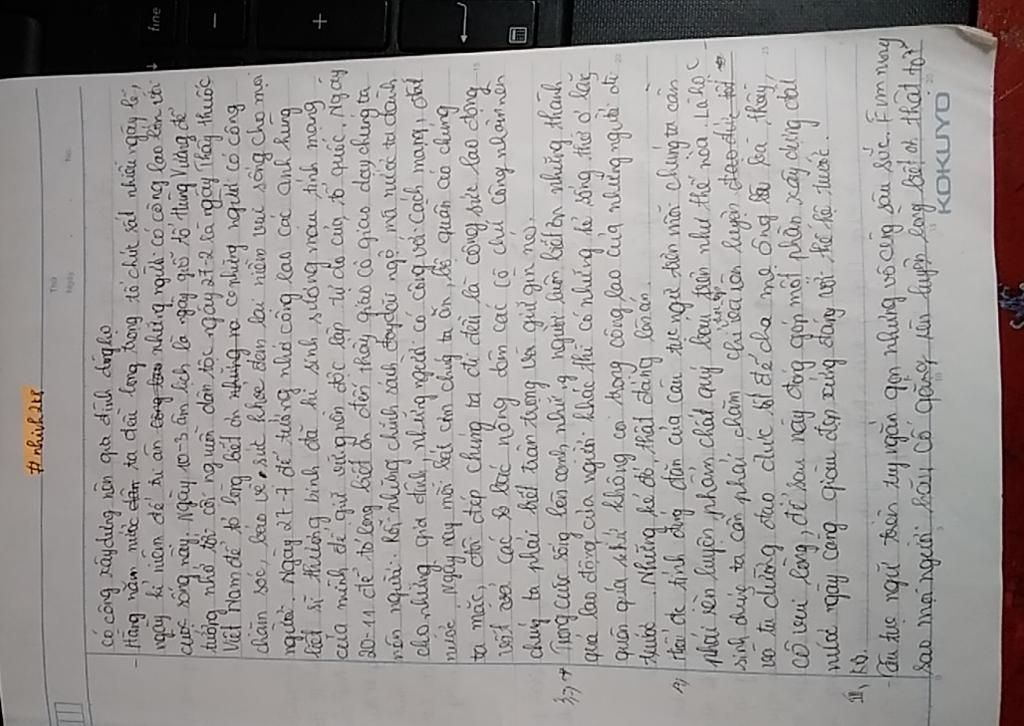 #nhinh2k8
Thứ
Ngày
No.
có công xây dựng nên gia đình dòng họ
- Hằng năm nước ta đều long trọng tổ chức rất nhiều ngày lễ,
ngày kỉ niệm để tri ân những người có công lao lớn với
cuộc sống nay. Ngày 10-3 âm lịch là ngày giỗ tổ Hùng Vương để
tưởng nhớ tới cội nguồn dân tộc ngày 27-2 là ngày Thầy thuốc
Việt Nam để tỏ lòng biết ơn những người có công
chăm sóc, bảo vệ sức khỏe đem lại niềm vui sống cho mọi
người. Ngày 27-7 để tưởng nhớ công lao các anh hùng
liệt sĩ thương binh đã hi sinh xương máu, tính mạng
của mình để giữ vững nền độc lập tự do của tổ quốc, Ngày
20-11 để tỏ lòng biết ơn đến thầy giáo cô giáo dạy chúng ta
nên người. Rồi những chính sách đãi ngộ mà nước ta dành
cho những gia đình những người có công với Cách mạng, đất
nước. Ngày nay mỗi bát cơm chúng ta ăn, bộ quần áo chúng
ta mặc, đồ đẹp chúng ta đi đều là công sức lao động
vất vả các bác nông dân các cô chú công nhân nên
chúng ta phải biết trân trọng và giữ gìn nó.
3, Trong cuộc sống bên cạnh những người luôn biết ơn những thành
quả lao động của người khác thì có những kẻ sống thờ ơ lãng
quên quá khứ không coi trọng công lao của những người đi
trước. Những kẻ đó thật đáng lên án.
Thái độ tính đúng đắn của câu tục ngữ trên mỗi chúng ta cần
phải rèn luyện phẩm chất quý báu trên như thế nào. Là học
sinh chúng ta cần phải chăm chỉ rèn luyện
và tu dưỡng đạo đức tốt để cha mẹ ông bà bà, thầy,
cô vui lòng, để sau này đóng góp một phần xây dựng đất
nước ngày càng giàu đẹp xứng đáng với thế hệ trước.
III, KB.
- Câu tục ngữ trên tuy ngắn gọn nhưng vô cùng sâu sắc. Em mong
sao mọi người hãy cố gắng rèn luyện lòng biết ơn thật tốt
KOKUYO